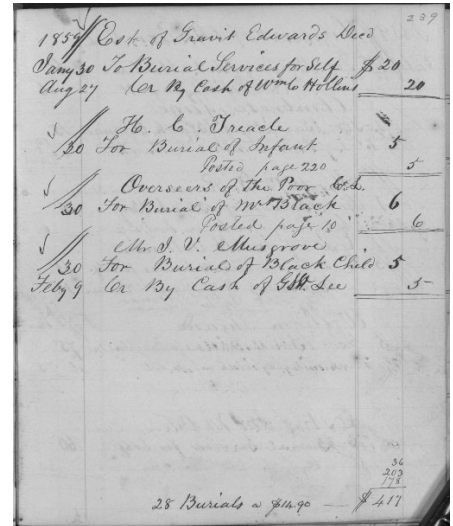 239
1859 Est of Gravit Edwards Decd
Jany 30 To Burial Services for Self $20
Aug 27 Cr By Cash of Wm C Hollins 20
H. C. Treacle
30 For Burial of Infant 5
Posted page 220 5
Overseers of the Poor
30 For Burial of Mr Black 6
Posted page 10 6
Mr J. V. Musgrove
30 For Burial of Black Child 5
Feby 9 Cr By Cash of Lee 5
36
203
178
28 Burials a $14.90 — $417